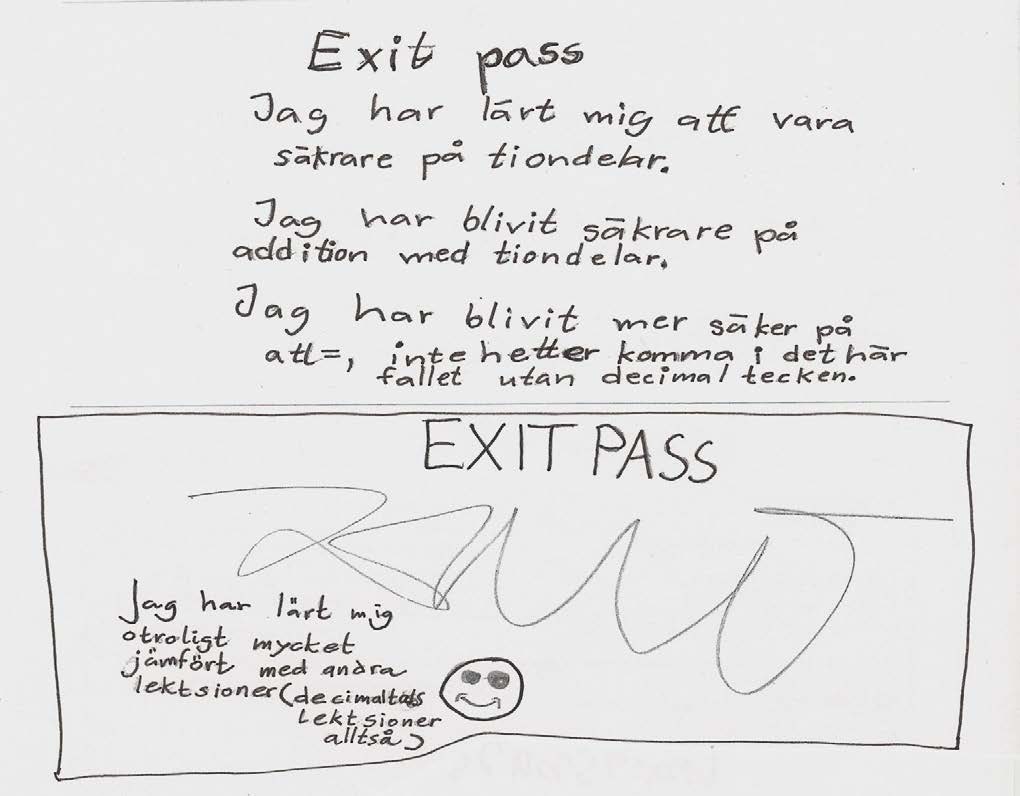 Exit pass
Jag har lärt mig att vara
säkrare på tiondelar.
Jag har blivit säkrare på
addition med tiondelar.
Jag har blivit mer säker på
att=, inte hetter komma i det här
fallet utan decimal tecken.
EXIT PASS
Jag har lärt mig
otroligt mycket
jämfört med andra
lektsioner (decimaltals
lektsioner
alltså)